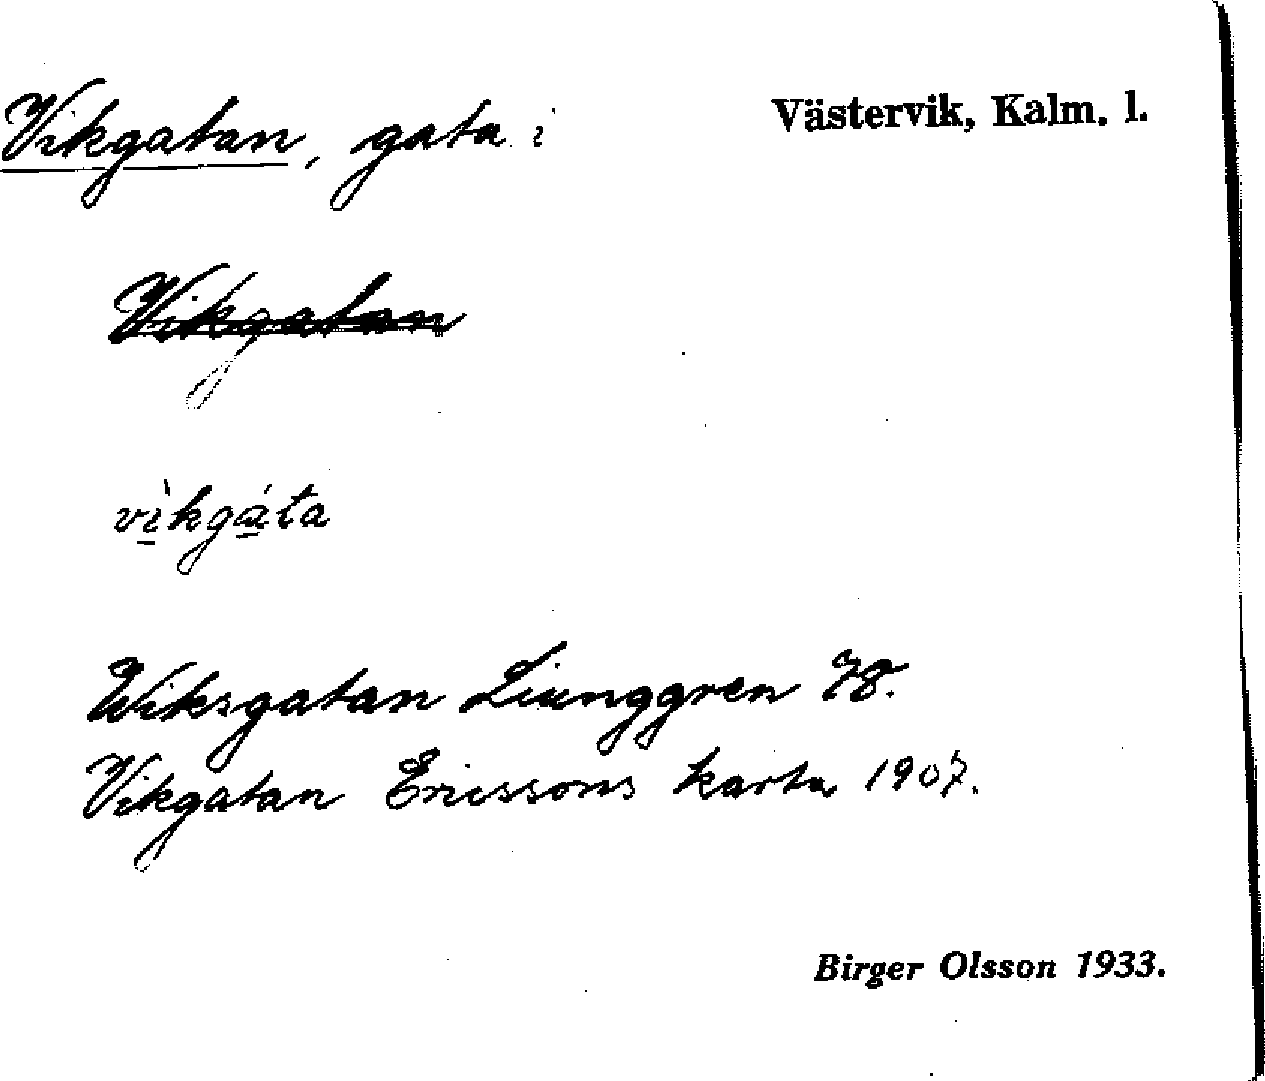 Vikgatan, gata i Västervik, Kalm. l.
Vikgatan
vì̲kgá̲ta
Wiksgatan Liunggren 78.
Vikgatan Ericssons karta 1907.
Birger Olsson 1933.